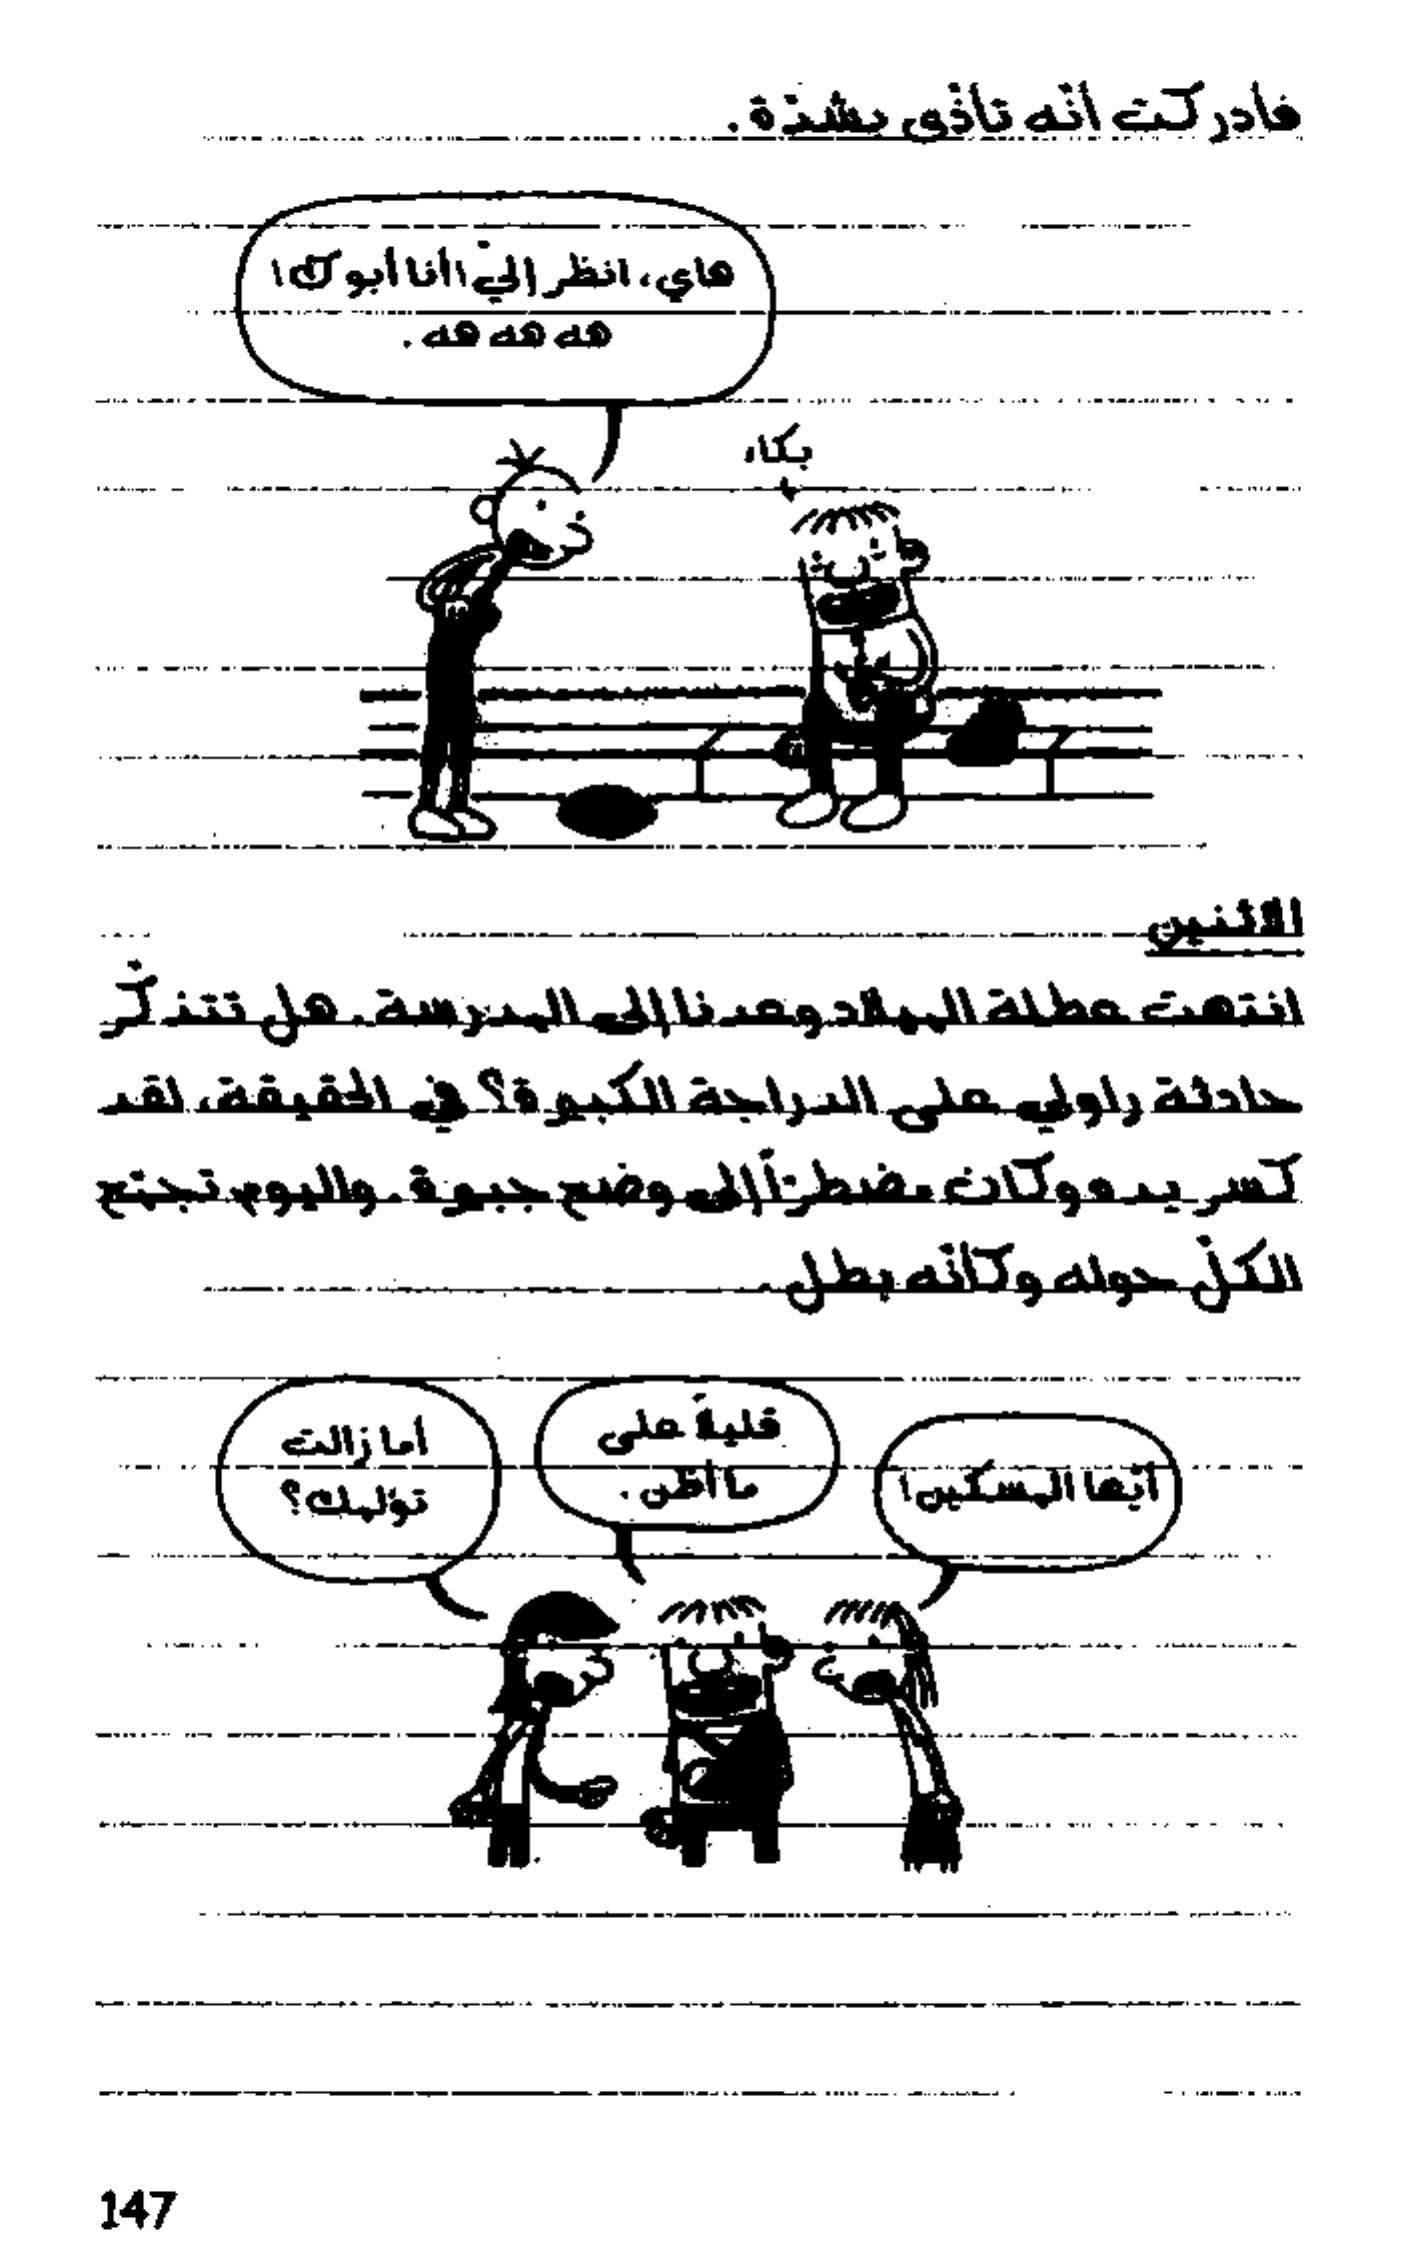 فأدركت أنّه تأذّى بشدّة.
هاي، انظر إليّ! أنا أبوك!
هه هه هه.
بكاء
الاثنين
انتهت عطلة الميلاد وعدنا إلى المدرسة. هل تتذكّر
حادثة راولي على الدراجة الكبيرة؟ في الحقيقة، لقد
كسر يده وكان مضطرّاً إلى وضع جبيرة. واليوم تجمّع
الكلّ حوله وكأنّه بطل.
أيّها المسكين!
قليلاً على
ما أظن.
أما زالت
تؤلمك؟
147